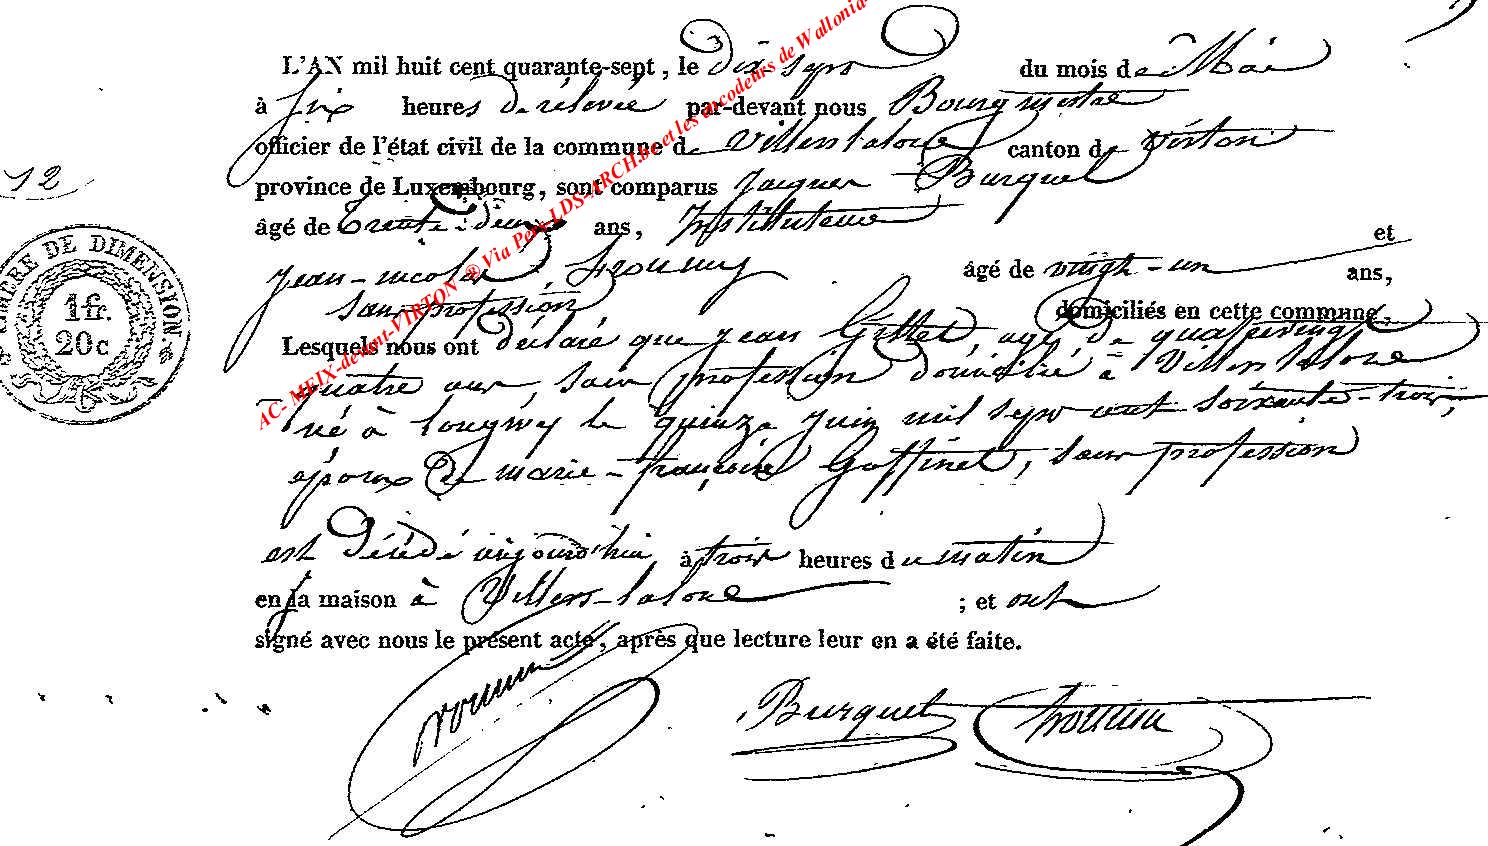 L'AN mil huit cent quarante-sept, le dix sept du mois de Mai
à six heures de rélevée par-devant nous Bourgmestre
officier de l'état civil de la commune de Villers laloue canton de Virton
12
province de Luxembourg, sont comparus Jacques Burquel
âgé de Trente-deux ans, Instituteur
et
jean-nicolas âgé de vingt-un ans,
sans profession domiciliés en cette commune,
Lesquels nous ont déclaré que jean Gillet, agé de quatrevingt
quatre ans, sans profession domicilié à Villers laloue
né à longwy le quinze juin mil sept cent soixante-trois,
époux de marie-françoise Goffinet, sans profession
est décédé aujourd'hui à trois heures du matin
en sa maison à Villers-laloue ; et ont
signé avec nous le présent acte, après que lecture leur en a été faite.
Burquel
TIMBRE DE DIMENSION.
1 fr.
20 c
AC- MEIX-devant-VIRTON ® Via Pers-LDS-ARCH.be et les encodeurs de Wallonia-